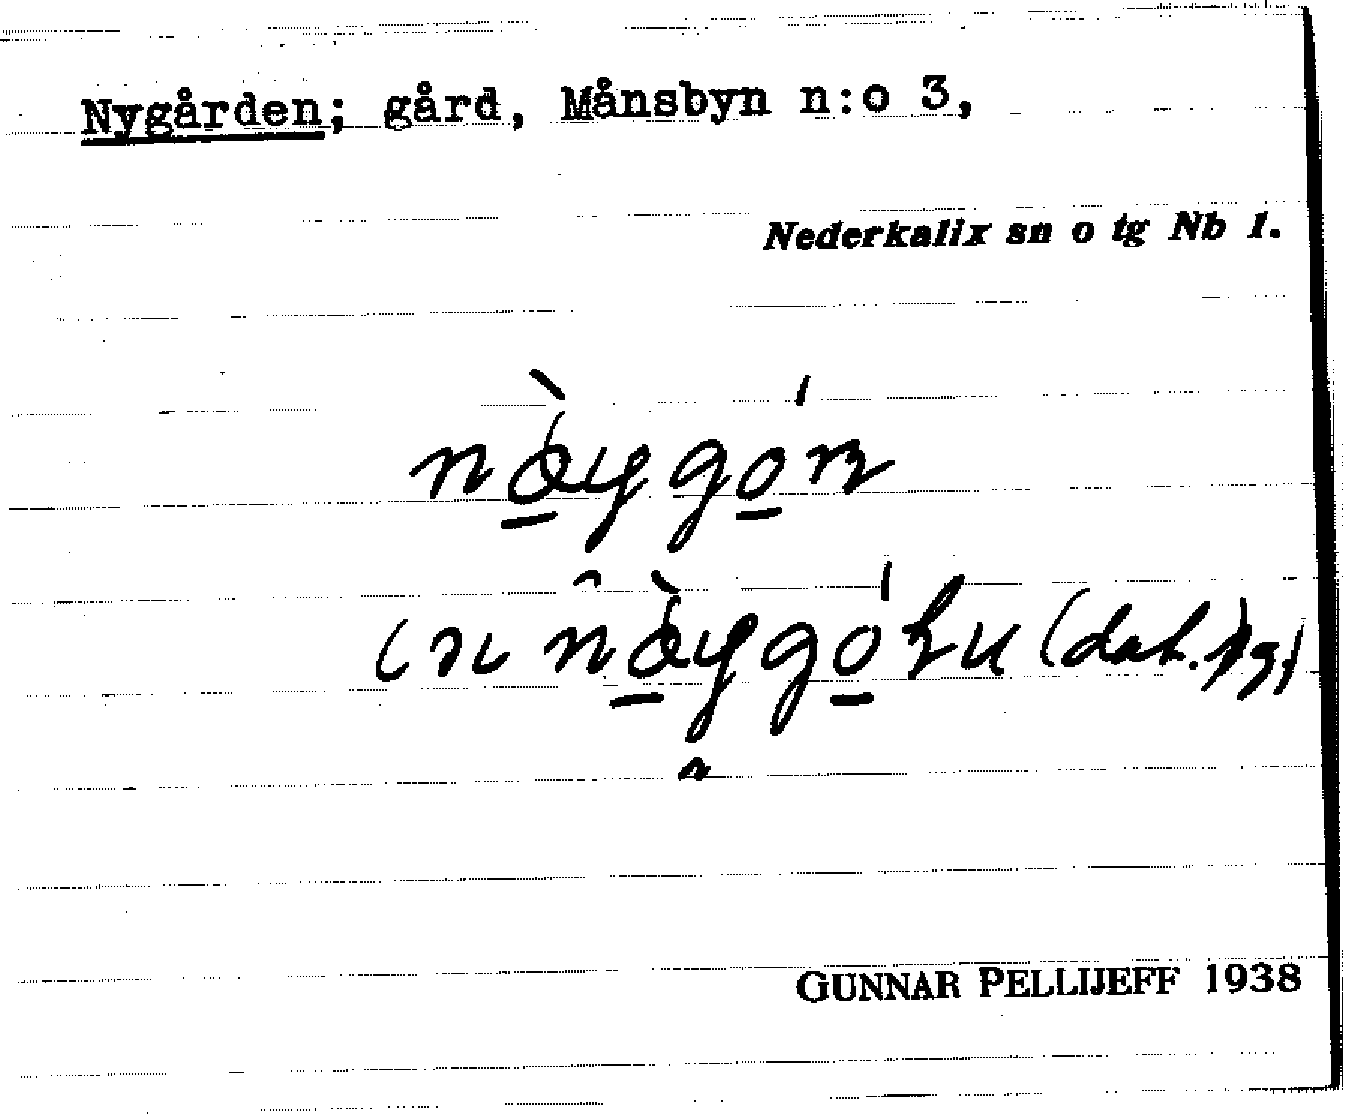 Nygården; gård, Månsbyn n:o 3,
Nederkalix sn o tg Nb 1.
(dat. sg.)
GUNNAR PELLIJEFF 1938